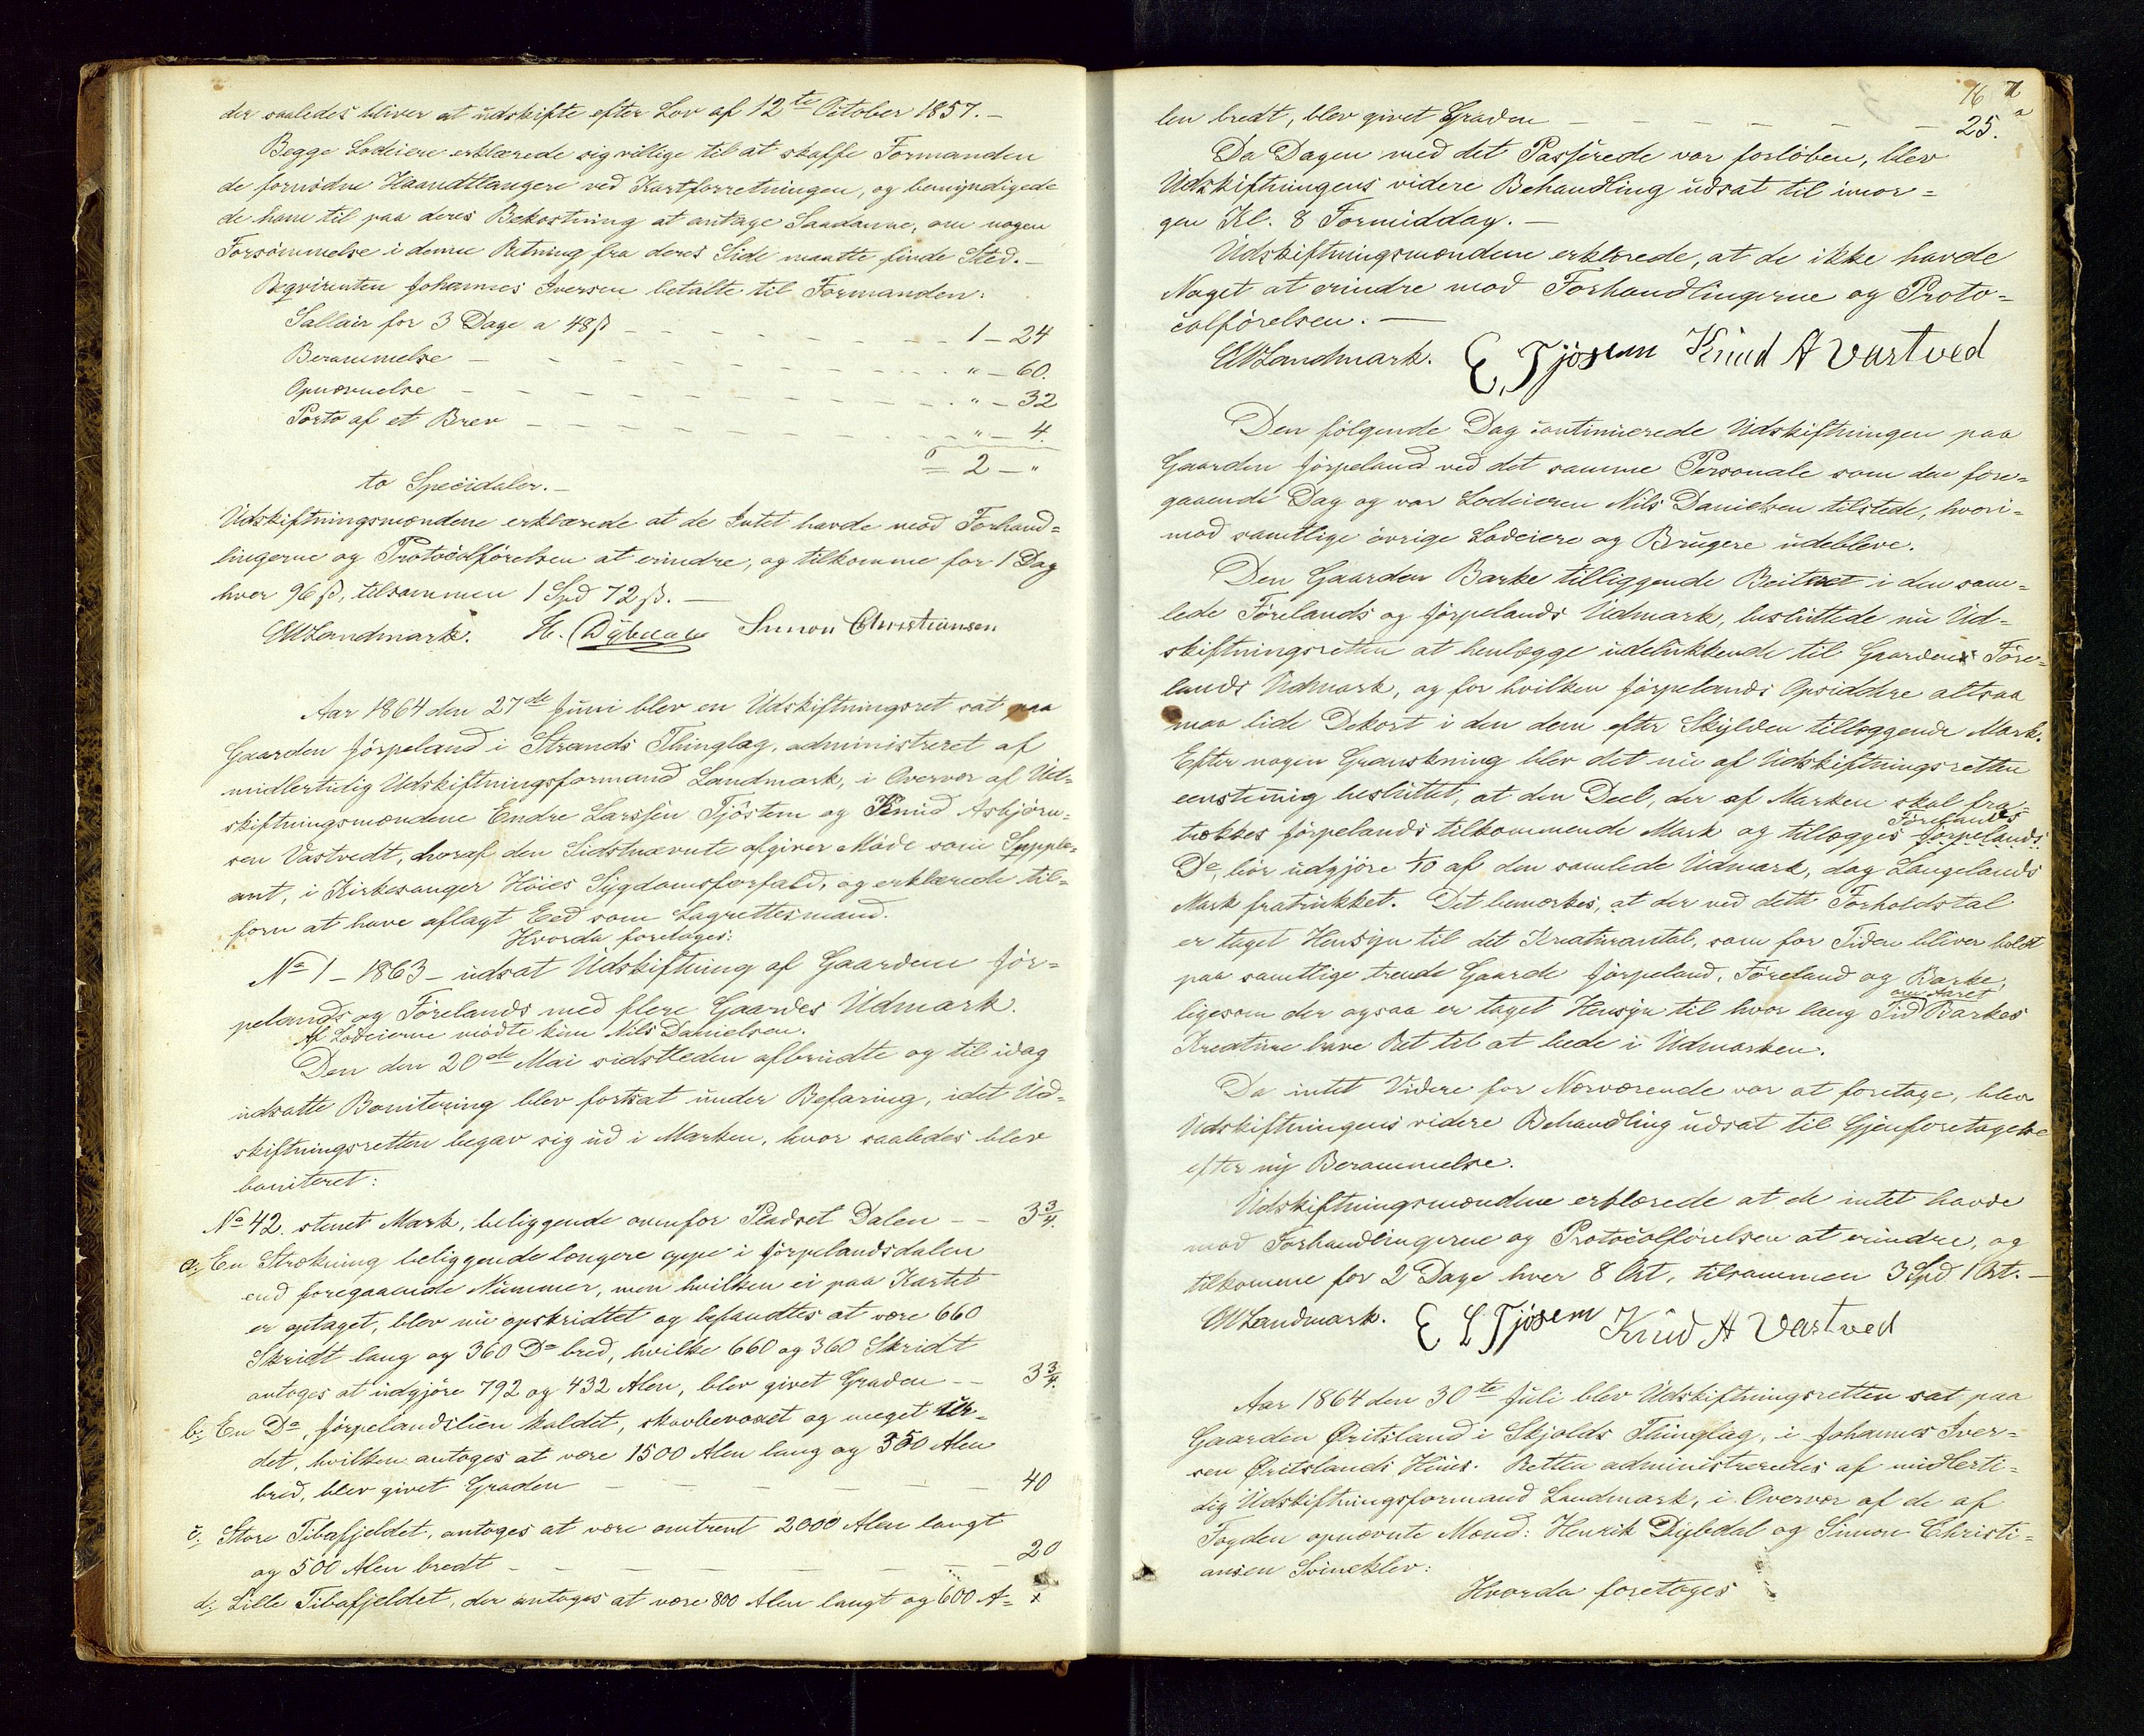 der saaledes bliver at udskifte efter Lov af 12te October 1857.—
Begge Lodeiere erklærede sig villige til at skaffe Formanden
de fornødne Haandtlangere ved Kartforretningen, og bemyndigede
de ham til paa deres Bekostning at antage Saadanne, om nogen
Forsømmelse i denne Retning fra deres Side maatte finde Sted.—
Reqvirenten Johannes Iversen betalte til Formanden:
Sallair for 3 Dage a 48ß — 1 – 24
Berammelse — " – 60.
Opnævnelse — " – 32
Porto af et Brev — " – 4.
= 2 – "
to Speciedaler.—
Udskiftningsmændene erklærede at de Intet havde mod Forhand=
lingerne og Protocolførelsen at erindre, og tilkomme for 1 Dag
hver 96 ß, tilsammen 1 Spd 72 ß.—
EWLandmark. H. Dybdal Simon Christiansen
Aar 1864 den 27de Juni blev en Udskiftningsret sat paa
Gaarden Jørpeland i Strands Thinglag, administreret af
midlertidig Udskiftningsformand Landmark, i Overvær af Ud=
skiftningsmændene Endre Larssen Tjøstem og Knud Asbjørn=
sen Vastvedt, hvoraf den Sidstnævnte afgiver Møde som Supple=
ant, i Kirkesanger Høies Sygdomsforfald, og erklærede til=
forn at have aflagt Eed som Lagrettesmand.
Hvorda foretoges:
No 1 – 1863 – udsat Udskiftning af Gaardene Jør=
pelands og Førelands med flere Gaardes Udmark.
Af Lodeierne mødte kun Nils Danielsen.
Den den 20de Mai sidstleden afbrudte og til idag
udsatte Bonitering blev fortsat under Befaring, idet Ud=
skiftningsretten begav sig ud i Marken, hvor saaledes blev
boniteret:
No 42. stenet Mark, beliggende ovenfor Pladset Dalen — 3 3/4.
a; En Strækning beliggende længere oppe i Jørpelandsdalen
end foregaaende Nummer, men hvilken ei paa Kartet
er optaget, blev nu opskridtet og befandtes at være 660
Skridt lang og 360 Do bred, hvilke 660 og 360 Skridt
antoges at udgjøre 792 og 432 Alen, blev givet Graden — 3 3/4.
b; En Do, Jørpelandslien kaldet, skovbevoxet og meget Ur=
det, hvilken antoges at være 1500 Alen lang og 350 Alen
bred, blev givet Graden — 40
c; Store Tibafjeldet, antoges at være omtrent 2000 Alen langt
og 500 Alen bredt — 20
d; Lille Tibafjeldet, der antoges at være 800 Alen langt og 600 A= x
16 7
a
len bredt, blev givet Graden — 25.
Da Dagen med det Passerede var forløben, blev
Udskiftningens videre Behandling udsat til imor=
gen Kl. 8 Formiddag.—
Udskiftningsmændene erklærede, at de ikke havde
Noget at erindre mod Forhandlingerne og Proto=
colførelsen.—
EWLandmark. E, Tjøsem Knud A Vastved
Den følgende Dag continuerede Udskiftningen paa
Gaarden Jørpeland ved det samme Personale som den fore=
gaaende Dag og var Lodeieren Nils Danielsen tilstede, hvori=
mod samtlige øvrige Lodeiere og Brugere udebleve.
Den Gaarden Barke tilliggende Beitret i den sam=
lede Førelands og Jørpelands Udmark, besluttede nu Ud=
skiftningsretten at henlægge udelukkende til Gaarden Føre=
lands Udmark, og for hvilken Jørpelands Opsiddere altsaa
maa lide Dekort i den dem efter Skylden tillæggende Mark.
Efter nogen Granskning blev det nu af Udskiftningsretten
eenstemig besluttet, at den Deel, der af Marken skal fra=
trækkes Jørpelands tilkommende Mark og tillægges Jørpelands
Førelands
Do, bør udgjøre 1/10 af den samlede Udmark, dog Langelands
Mark fratrukket. Det bemærkes, at der ved dette Forholdstal
er taget Hensyn til det Kreaturantal, som for Tiden bliver holdt
paa samtlige trende Gaarde Jørpeland, Føreland og Barke,
ligesom der ogsaa er taget Hensyn til hvor lang Tid Barkes
om Aaret
Kreature have Ret til at bede i Udmarken.
Da intet Videre for Nærværende var at foretage, blev
Udskiftningens videre Behandling udsat til Gjenforetagelse
efter ny Berammelse.
Udskiftningsmændene erklærede at de intet havde
mod Forhandlingerne og Protocolførelsen at erindre, og
tilkomme for 2 Dage hver 8 Ort, tilsammen 3 Spd 1 Ort.—
EWLandmark. E L Tjøsem Knud A Vastved
Aar 1864 den 30te Juli blev Udskiftningsretten sat paa
Gaarden Øritsland i Skjolds Thinglag, i Johannes Iver=
sen Øritslands Huus. Retten administreredes af midlerti=
dig Udskiftningsformand Landmark, i Overvær af de af
Fogden opnævnte Mænd: Henrik Dybdal og Simon Christi=
ansen Svineklev:
Hvorda foretoges